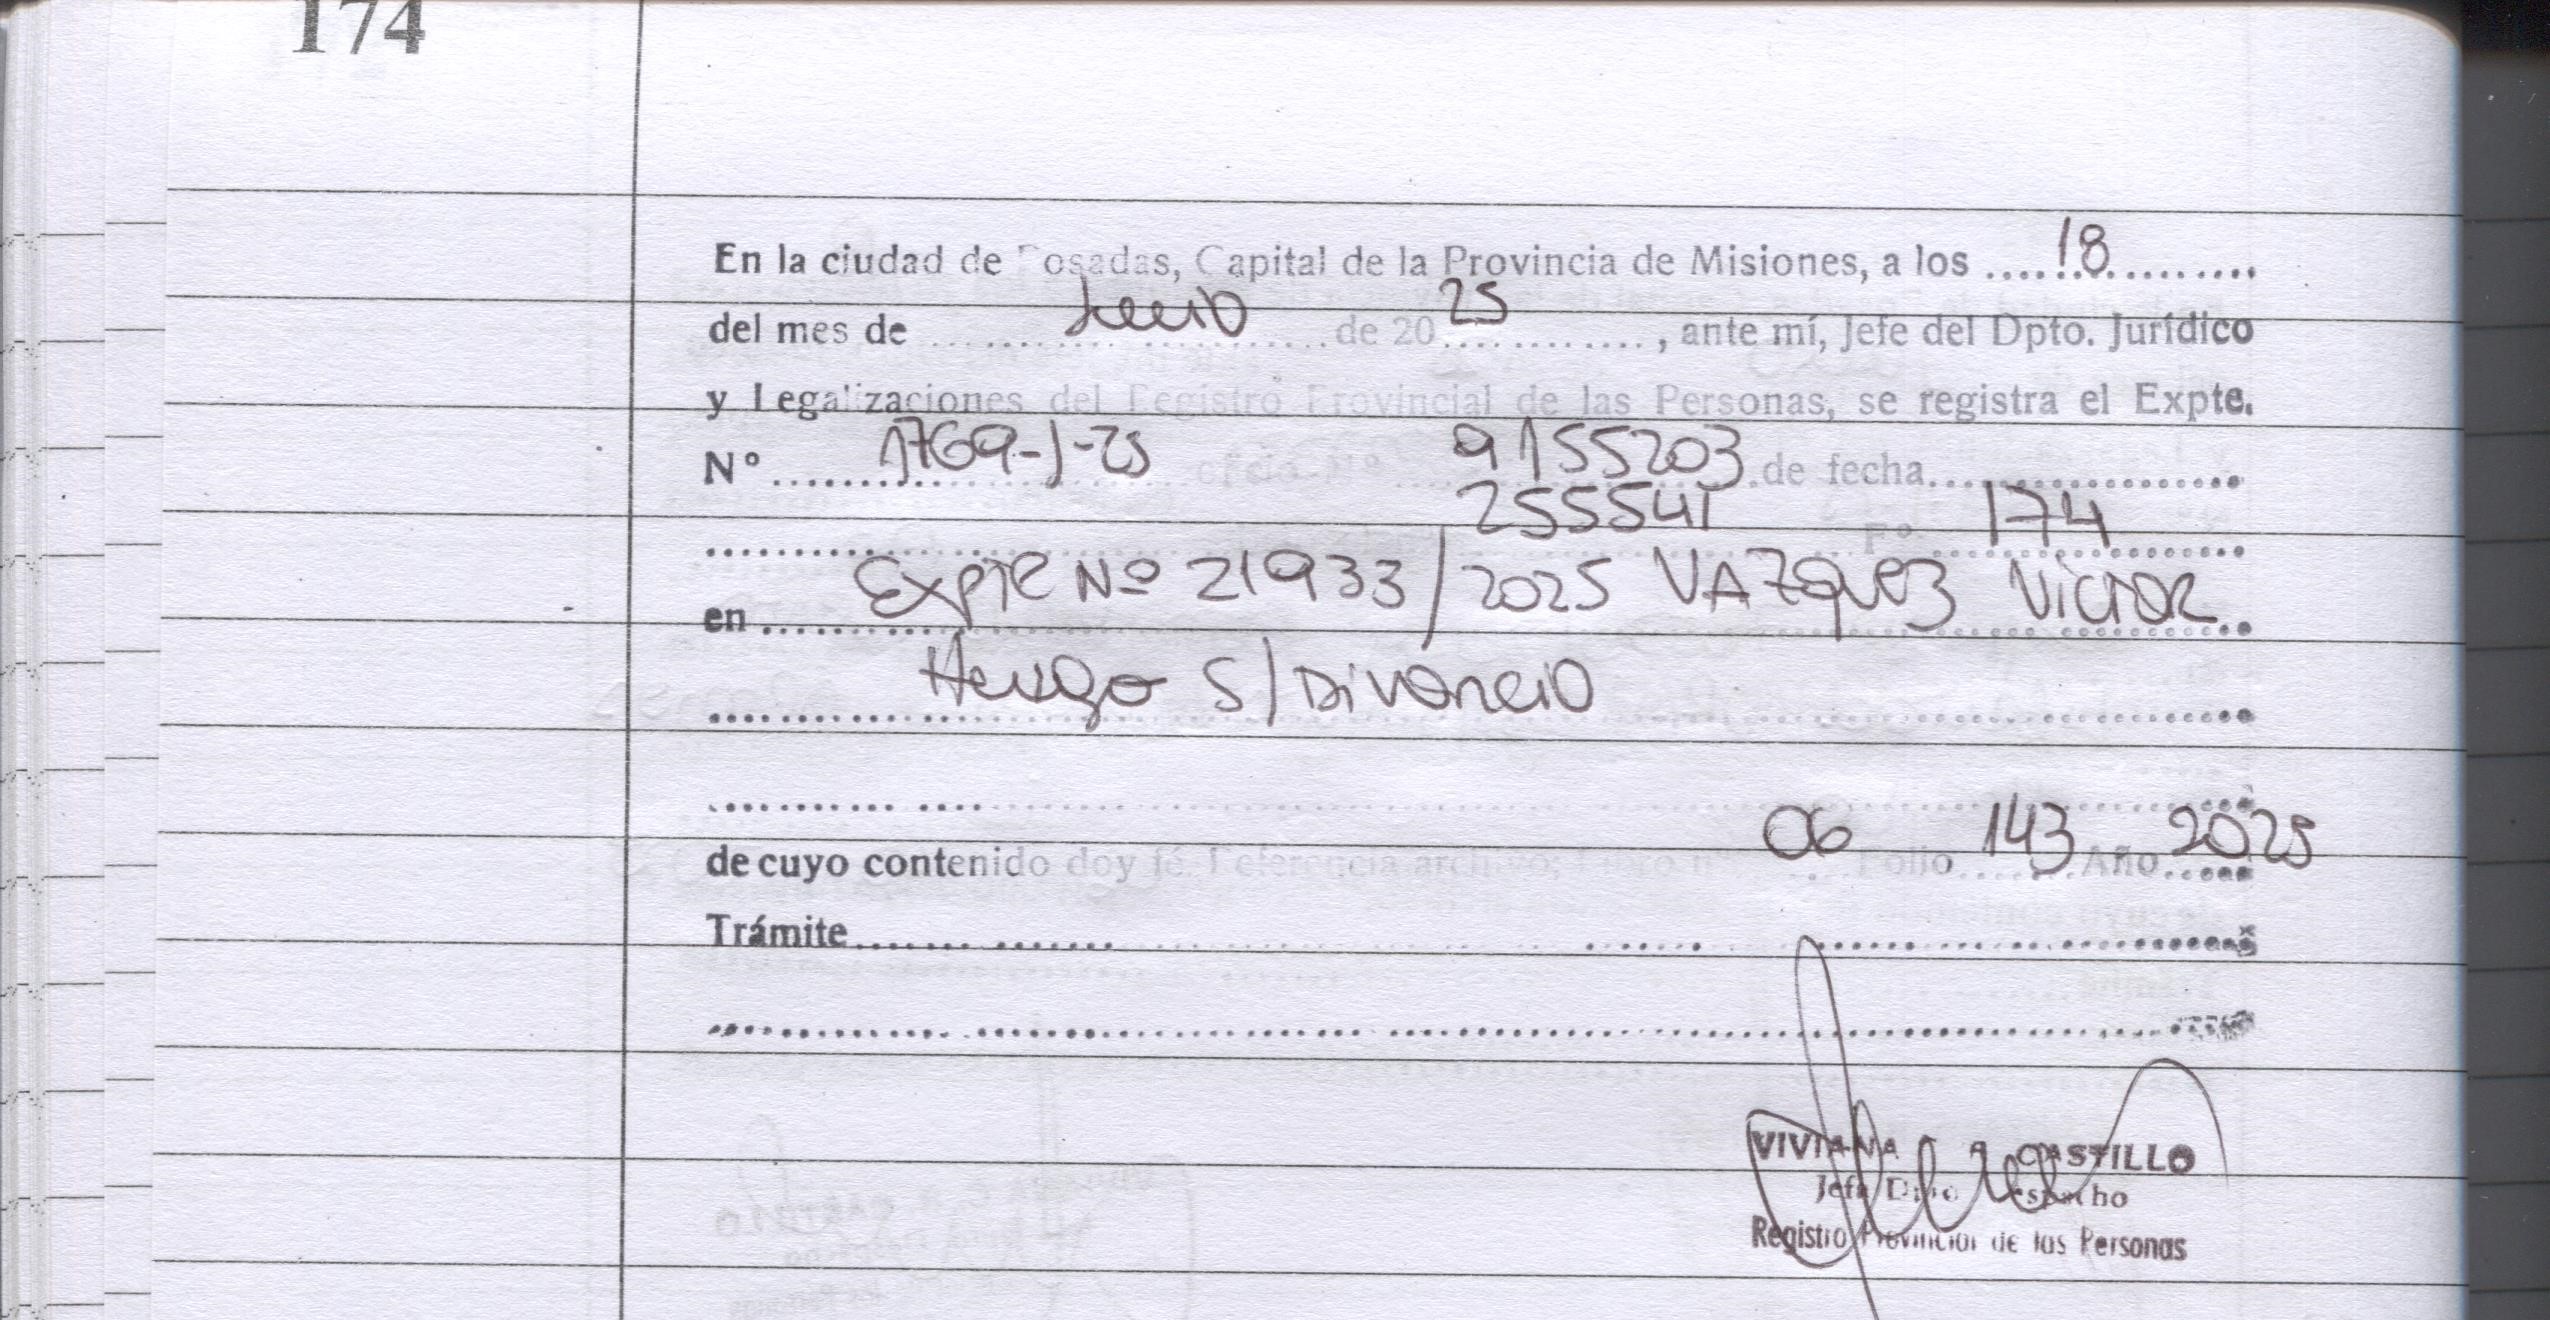 174
En la ciudad de Posadas, Capital de la Provincia de Misiones, a los ....18..........
del mes de .......... Junio .......... de 20 25 ............, ante mí, Jefe del Dpto. Jurídico
y Legalizaciones del Registro Provincial de las Personas, se registra el Expte.
Nº ........ 1769-J-25 oficio Nº 9155203 de fecha..................
.......... 255541 Fº 174
en .......... Expte Nº 21933/2025 VAZquez Victor
Hugo S/ Divorcio
de cuyo contenido doy fé. Referencia archivo; 06 Folio 143 Año 2025
Trámite
VIVIANA CASTILLO
Jefa Dpto Despacho
Registro Provincial de las Personas